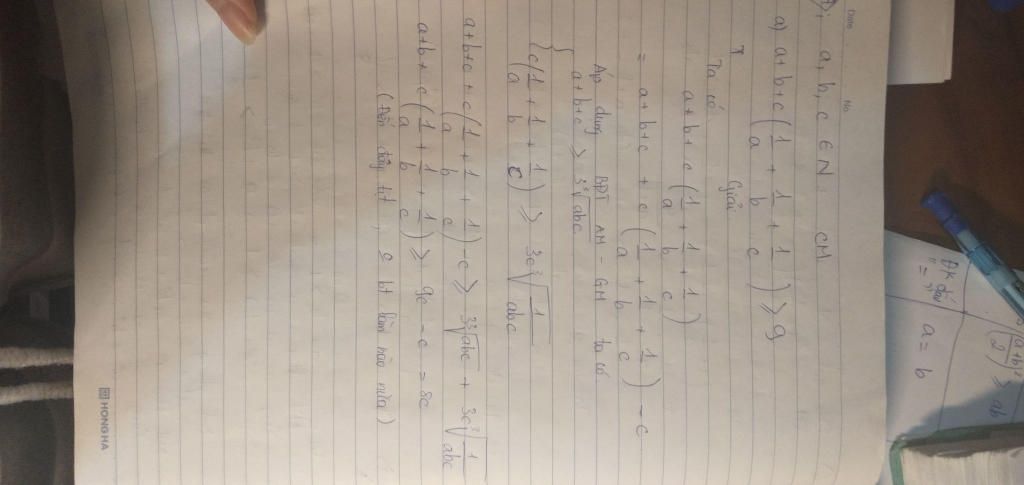 Date No
1); a, b, c ∈ N. CM
a) a+b+c(1/a + 1/b + 1/c) ≥ 9
Giải
Ta có
a+b+c(1/a + 1/b + 1/c)
= a+b+c + c(1/a + 1/b + 1/c) - c
Áp dụng BĐT AM - GM ta có
{ a+b+c ≥ 3∛abc
c(1/a + 1/b + 1/c) ≥ 3c∛(1/abc)
a+b+c + c(1/a + 1/b + 1/c) - c ≥ 3∛abc + 3c∛(1/abc)
a+b+c(1/a + 1/b + 1/c) ≥ 9c - c = 8c
(Đến đây tịt, c bt làm nào nữa)
HONG HA
(a+b/2)² ≥ ab
ĐK dấu
"=" a = b